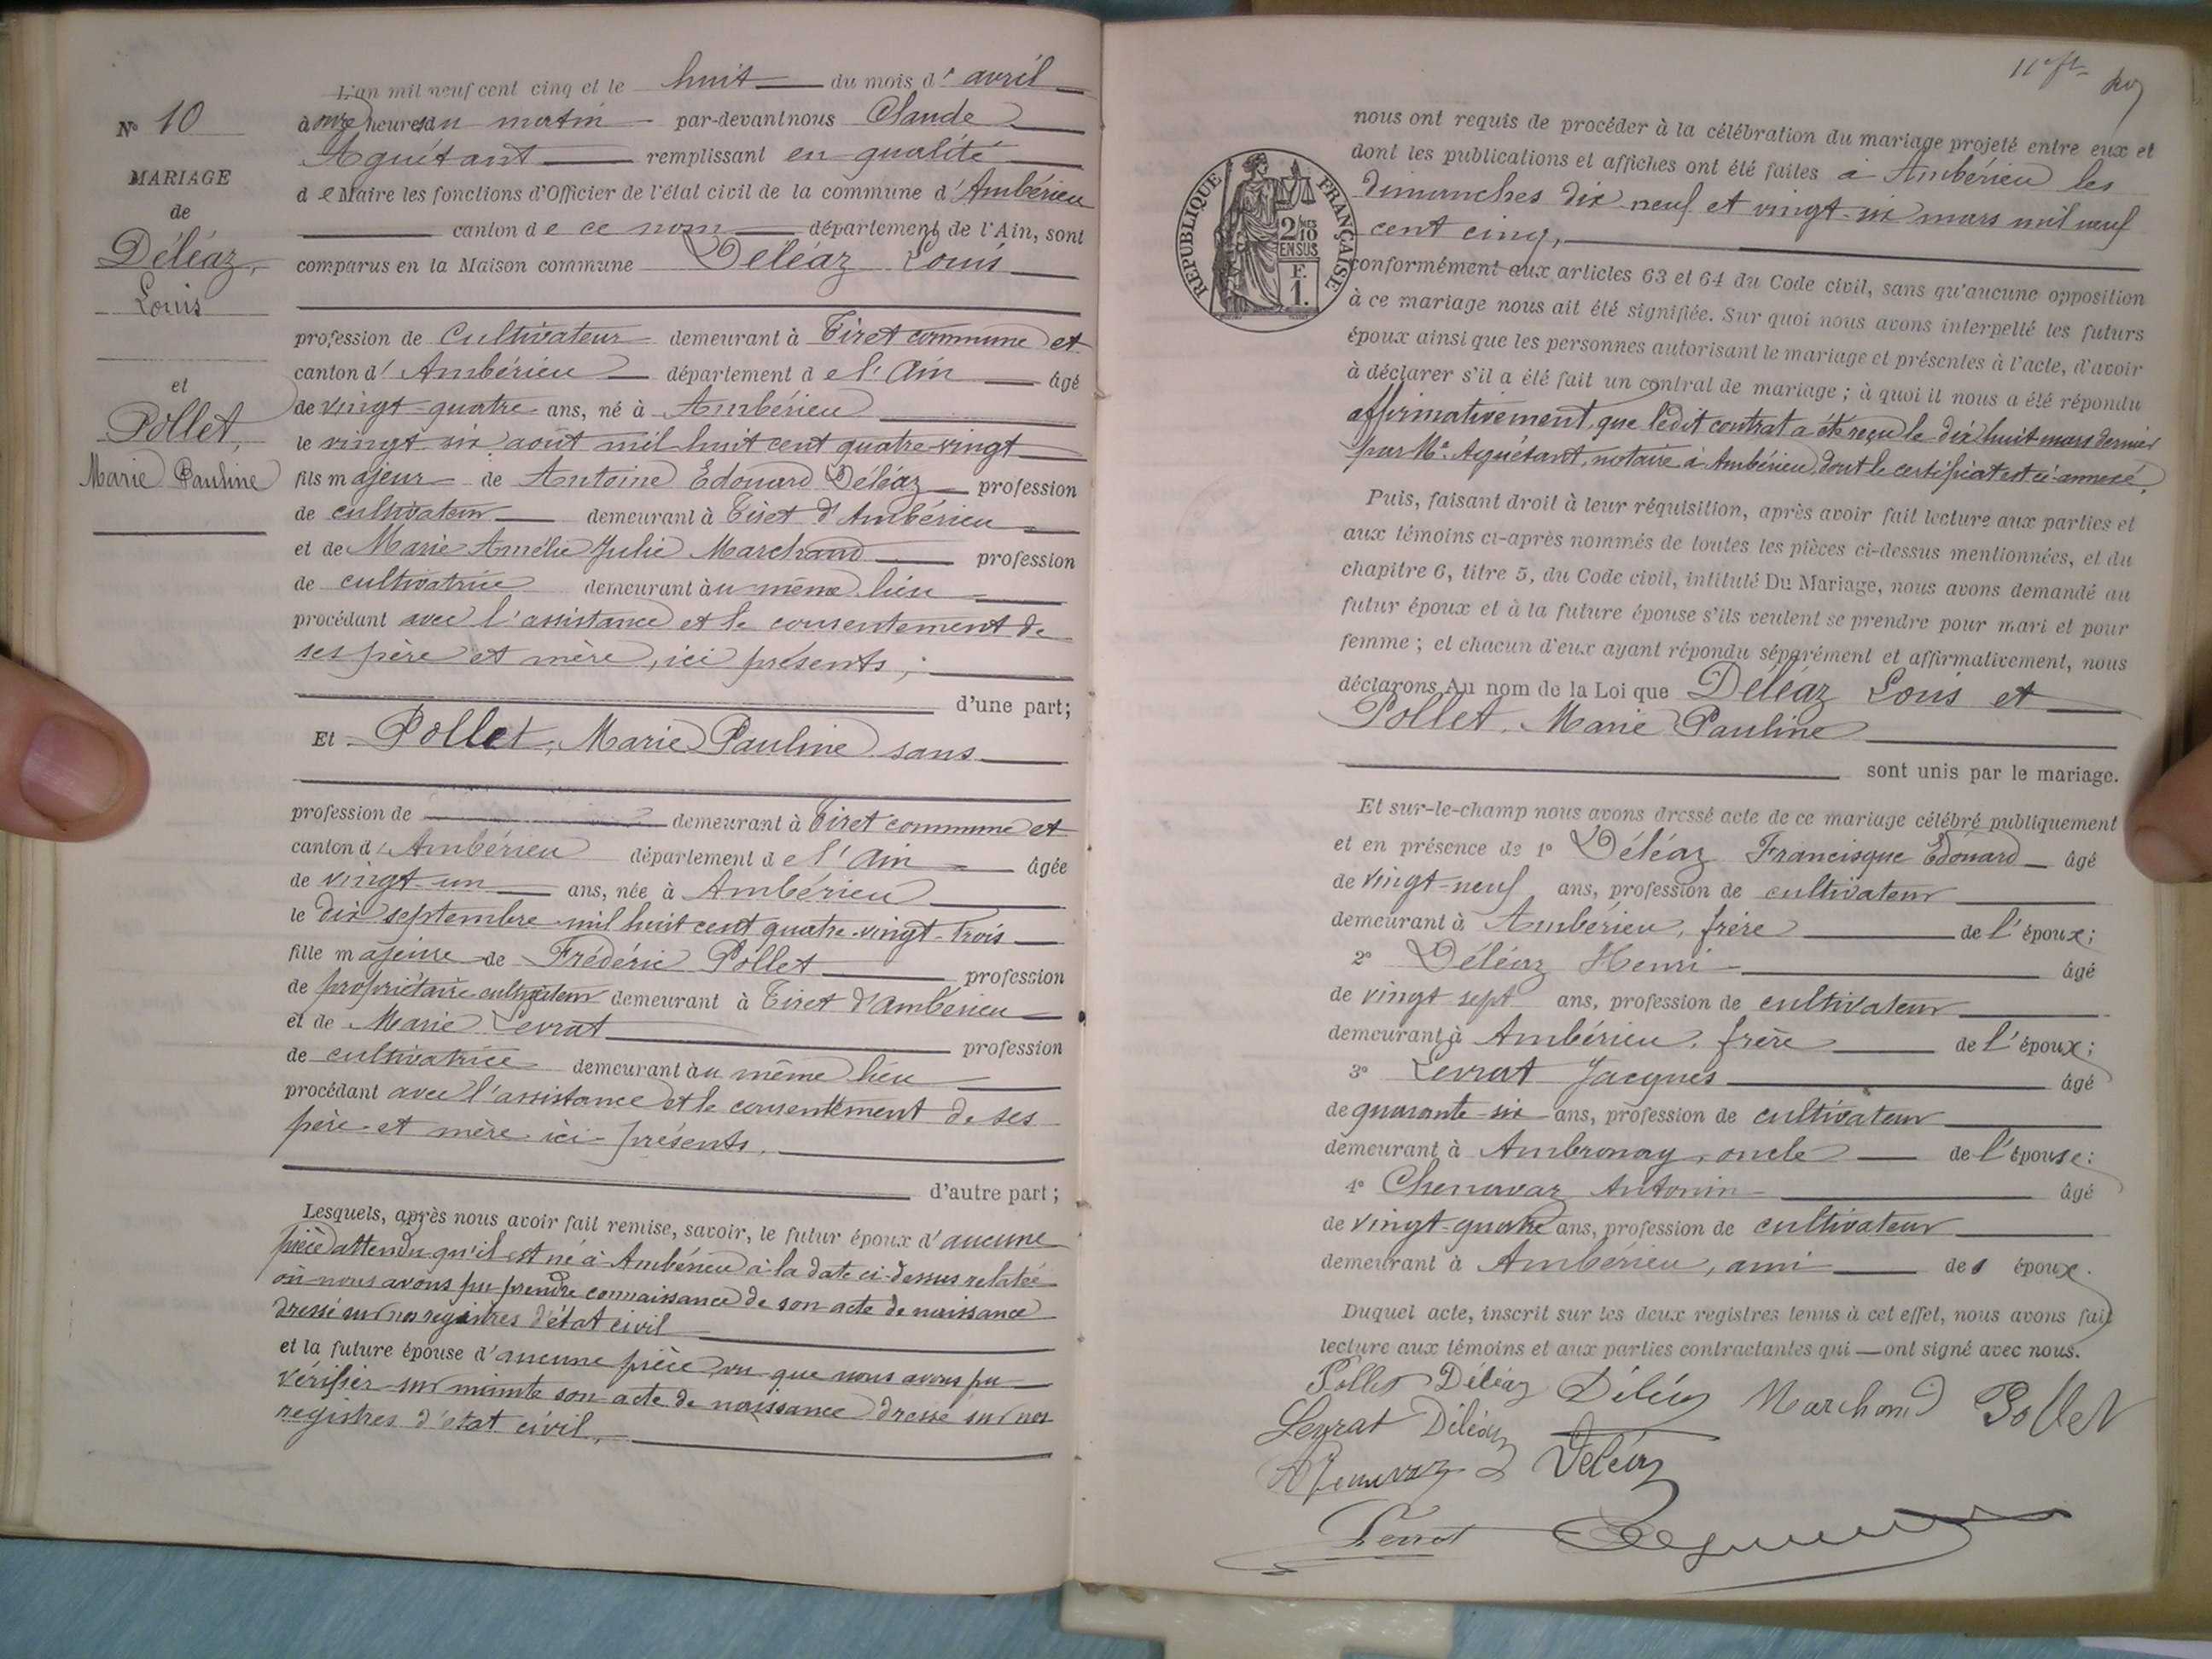 L'an mil neuf cent cinq et le huit du mois d' avril
à onze heures du matin par-devant nous Claude
Aguétant remplissant en qualité
de Maire les fonctions d'Officier de l'état civil de la commune d'Ambérieu
canton de ce nom département de l'Ain, sont
comparus en la Maison commune Déléaz Louis
N° 10
MARIAGE
de
Déléaz,
Louis
et
Pollet,
Marie Pauline
profession de Cultivateur demeurant à Tiret commune et
canton d' Ambérieu département de l'Ain âgé
de vingt-quatre ans, né à Ambérieu
le vingt six août mil huit cent quatre-vingt
fils majeur de Antoine Edouard Déléaz profession
de cultivateur demeurant à Tiret d'Ambérieu
et de Marie Amélie Julie Marchand profession
de cultivatrice demeurant au même lieu
procédant avec l'assistance et le consentement de
ses père et mère, ici présents,
d'une part;
Et Pollet, Marie Pauline sans
profession de demeurant à Tiret commune et
canton d' Ambérieu département de l'Ain âgée
de vingt-un ans, née à Ambérieu
le dix septembre mil huit cent quatre-vingt-trois
fille majeure de Frédéric Pollet profession
de propriétaire cultivateur demeurant à Tiret d'Ambérieu
et de Marie Levrat profession
de cultivatrice demeurant au même lieu
procédant avec l'assistance et le consentement de ses
père et mère ici présents.
d'autre part;
Lesquels, après nous avoir fait remise, savoir, le futur époux d'aucune
pièce attendu qu'il est né à Ambérieu à la date ci-dessus relatée
où nous avons pu prendre connaissance de son acte de naissance
dressé sur nos registres d'état civil
et la future épouse d'aucune pièce, vu que nous avons pu
vérifier sur minute son acte de naissance dressé sur nos
registres d'état civil,
nous ont requis de procéder à la célébration du mariage projeté entre eux et
dont les publications et affiches ont été faites à Ambérieu les
dimanches dix-neuf et vingt-six mars mil neuf
cent cinq,
RÉPUBLIQUE FRANÇAISE
2/10
EN SUS
F.
1.
conformément aux articles 63 et 64 du Code civil, sans qu'aucune opposition
à ce mariage nous ait été signifiée. Sur quoi nous avons interpellé les futurs
époux ainsi que les personnes autorisant le mariage et présentes à l'acte, d'avoir
à déclarer s'il a été fait un contrat de mariage; à quoi il nous a été répondu
affirmativement, que ledit contrat a été reçu le dix huit mars dernier
par Me Aguétant, notaire à Ambérieu, dont le certificat est ci-annexé.
Puis, faisant droit à leur réquisition, après avoir fait lecture aux parties et
aux témoins ci-après nommés de toutes les pièces ci-dessus mentionnées, et du
chapitre 6, titre 5, du Code civil, intitulé Du Mariage, nous avons demandé au
futur époux et à la future épouse s'ils veulent se prendre pour mari et pour
femme; et chacun d'eux ayant répondu séparément et affirmativement, nous
déclarons Au nom de la Loi que Déléaz Louis et
Pollet, Marie Pauline
sont unis par le mariage.
Et sur-le-champ nous avons dressé acte de ce mariage célébré publiquement
et en présence de 1° Déléaz Francisque Edouard âgé
de vingt-neuf ans, profession de cultivateur
demeurant à Ambérieu, frère de l'époux;
2° Déléaz Henri âgé
de vingt sept ans, profession de cultivateur
demeurant à Ambérieu, frère de l'époux;
3° Levrat Jacques âgé
de quarante-six ans, profession de cultivateur
demeurant à Ambronay, oncle de l'épouse;
4° Chenavaz Antonin âgé
de vingt-quatre ans, profession de cultivateur
demeurant à Ambérieu, ami des époux.
Duquel acte, inscrit sur les deux registres tenus à cet effet, nous avons fait
lecture aux témoins et aux parties contractantes qui ont signé avec nous.
Pollet Déléaz Déléaz Marchand Pollet
Levrat Déléaz
Chenavaz Déléaz